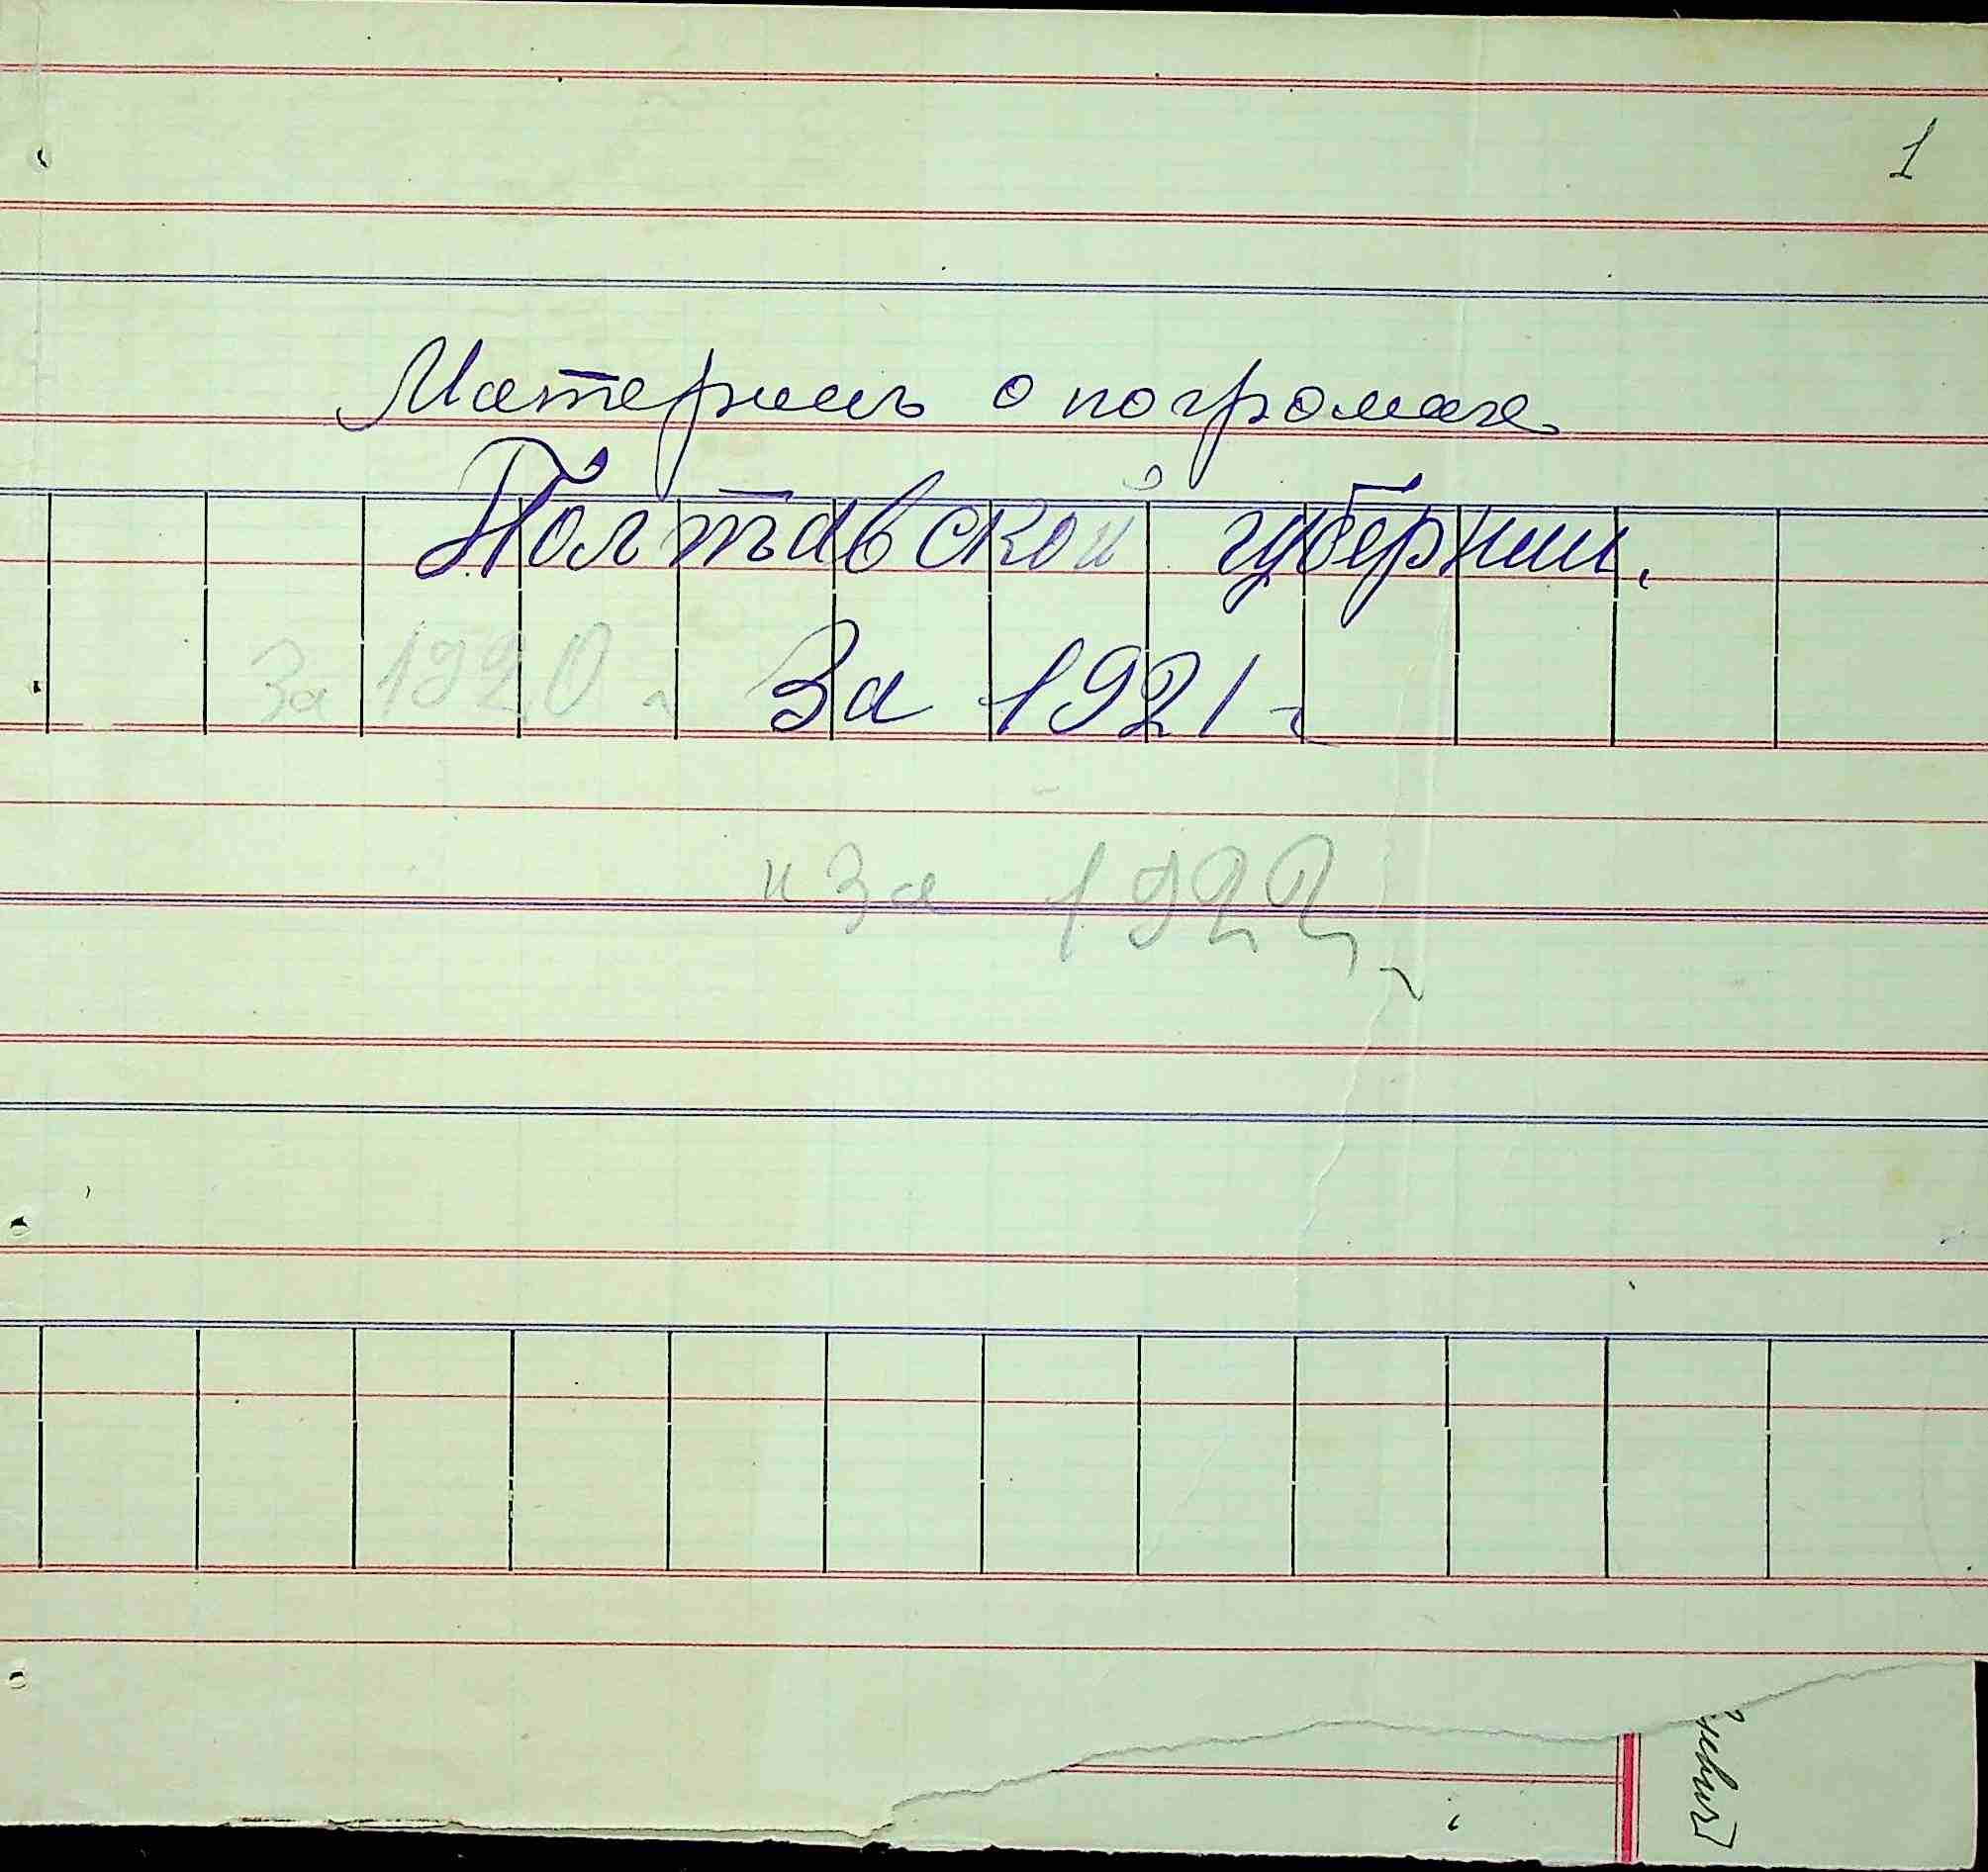 1
Материал о погромах
Полтавской губернии.
за 1920 г. За 1921 г
и за 1922 г